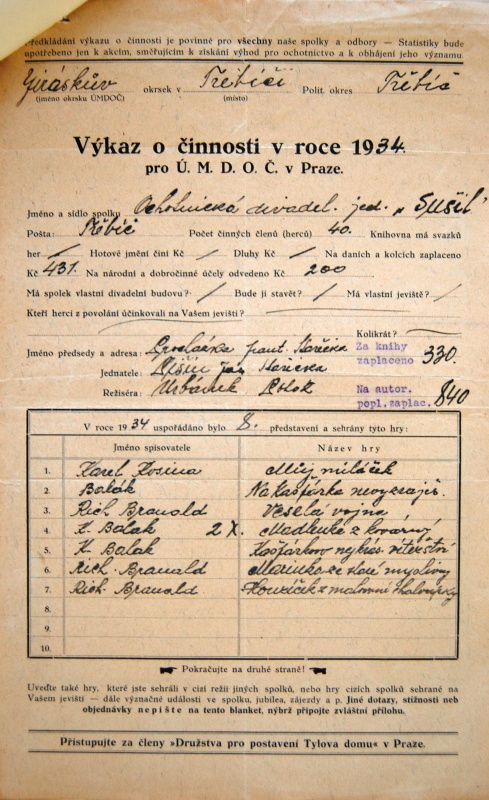 Předkládání výkazu o činnosti je povinné pro všechny naše spolky a odbory — Statistiky bude
upotřebeno jen k akcím, směřujícím k získání výhod pro ochotnictvo a k obhájení jeho významu.
Jiráskův okrsek v Třebíči Polit. okres Třebíč
(jméno okrsku ÚMDOČ) (místo)
Výkaz o činnosti v roce 1934.
pro Ú. M. D. O. Č. v Praze.
Jméno a sídlo spolku Ochotnická divadel. jed. „Sušil"
Pošta: Třebíč Počet činných členů (herců) 40. Knihovna má svazků
her / Hotové jmění činí Kč / Dluhy Kč / Na daních a kolcích zaplaceno
Kč 431. Na národní a dobročinné účely odvedeno Kč 200
Má spolek vlastní divadelní budovu? / Bude ji stavět? / Má vlastní jeviště? /
Kteří herci z povolání účinkovali na Vašem jevišti?
Kolikrát?
Jméno předsedy a adresa: Procházka frant. Za knihy
zaplaceno 330.
Jednatele:
Režiséra: Urbánek Na autor.
popl. zaplac. 840
V roce 1934 uspořádáno bylo 8. představení a sehrány tyto hry:
Jméno spisovatele Název hry
1. Karel Kosina Můj miláček
2. Balák Na Kašpárka nevyzraješ.
3. Rich Branald Veselá vojna
4. K. Balak 2 X. Madlenka z kovárny
5. K Balak
6. Rich. Branald Marinka ze staré myslivny
7. Rich. Branald
8.
9.
10.
Pokračujte na druhé straně!
Uveďte také hry, které jste sehráli v cizí režii jiných spolků, nebo hry cizích spolků sehrané na
Vašem jevišti — dále význačné události ve spolku, jubilea, zájezdy a pod. Jiné dotazy, stížnosti neb
objednávky nepište na tento blanket, nýbrž připojte zvláštní přílohu.
Přistupujte za členy »Družstva pro postavení Tylova domu« v Praze.